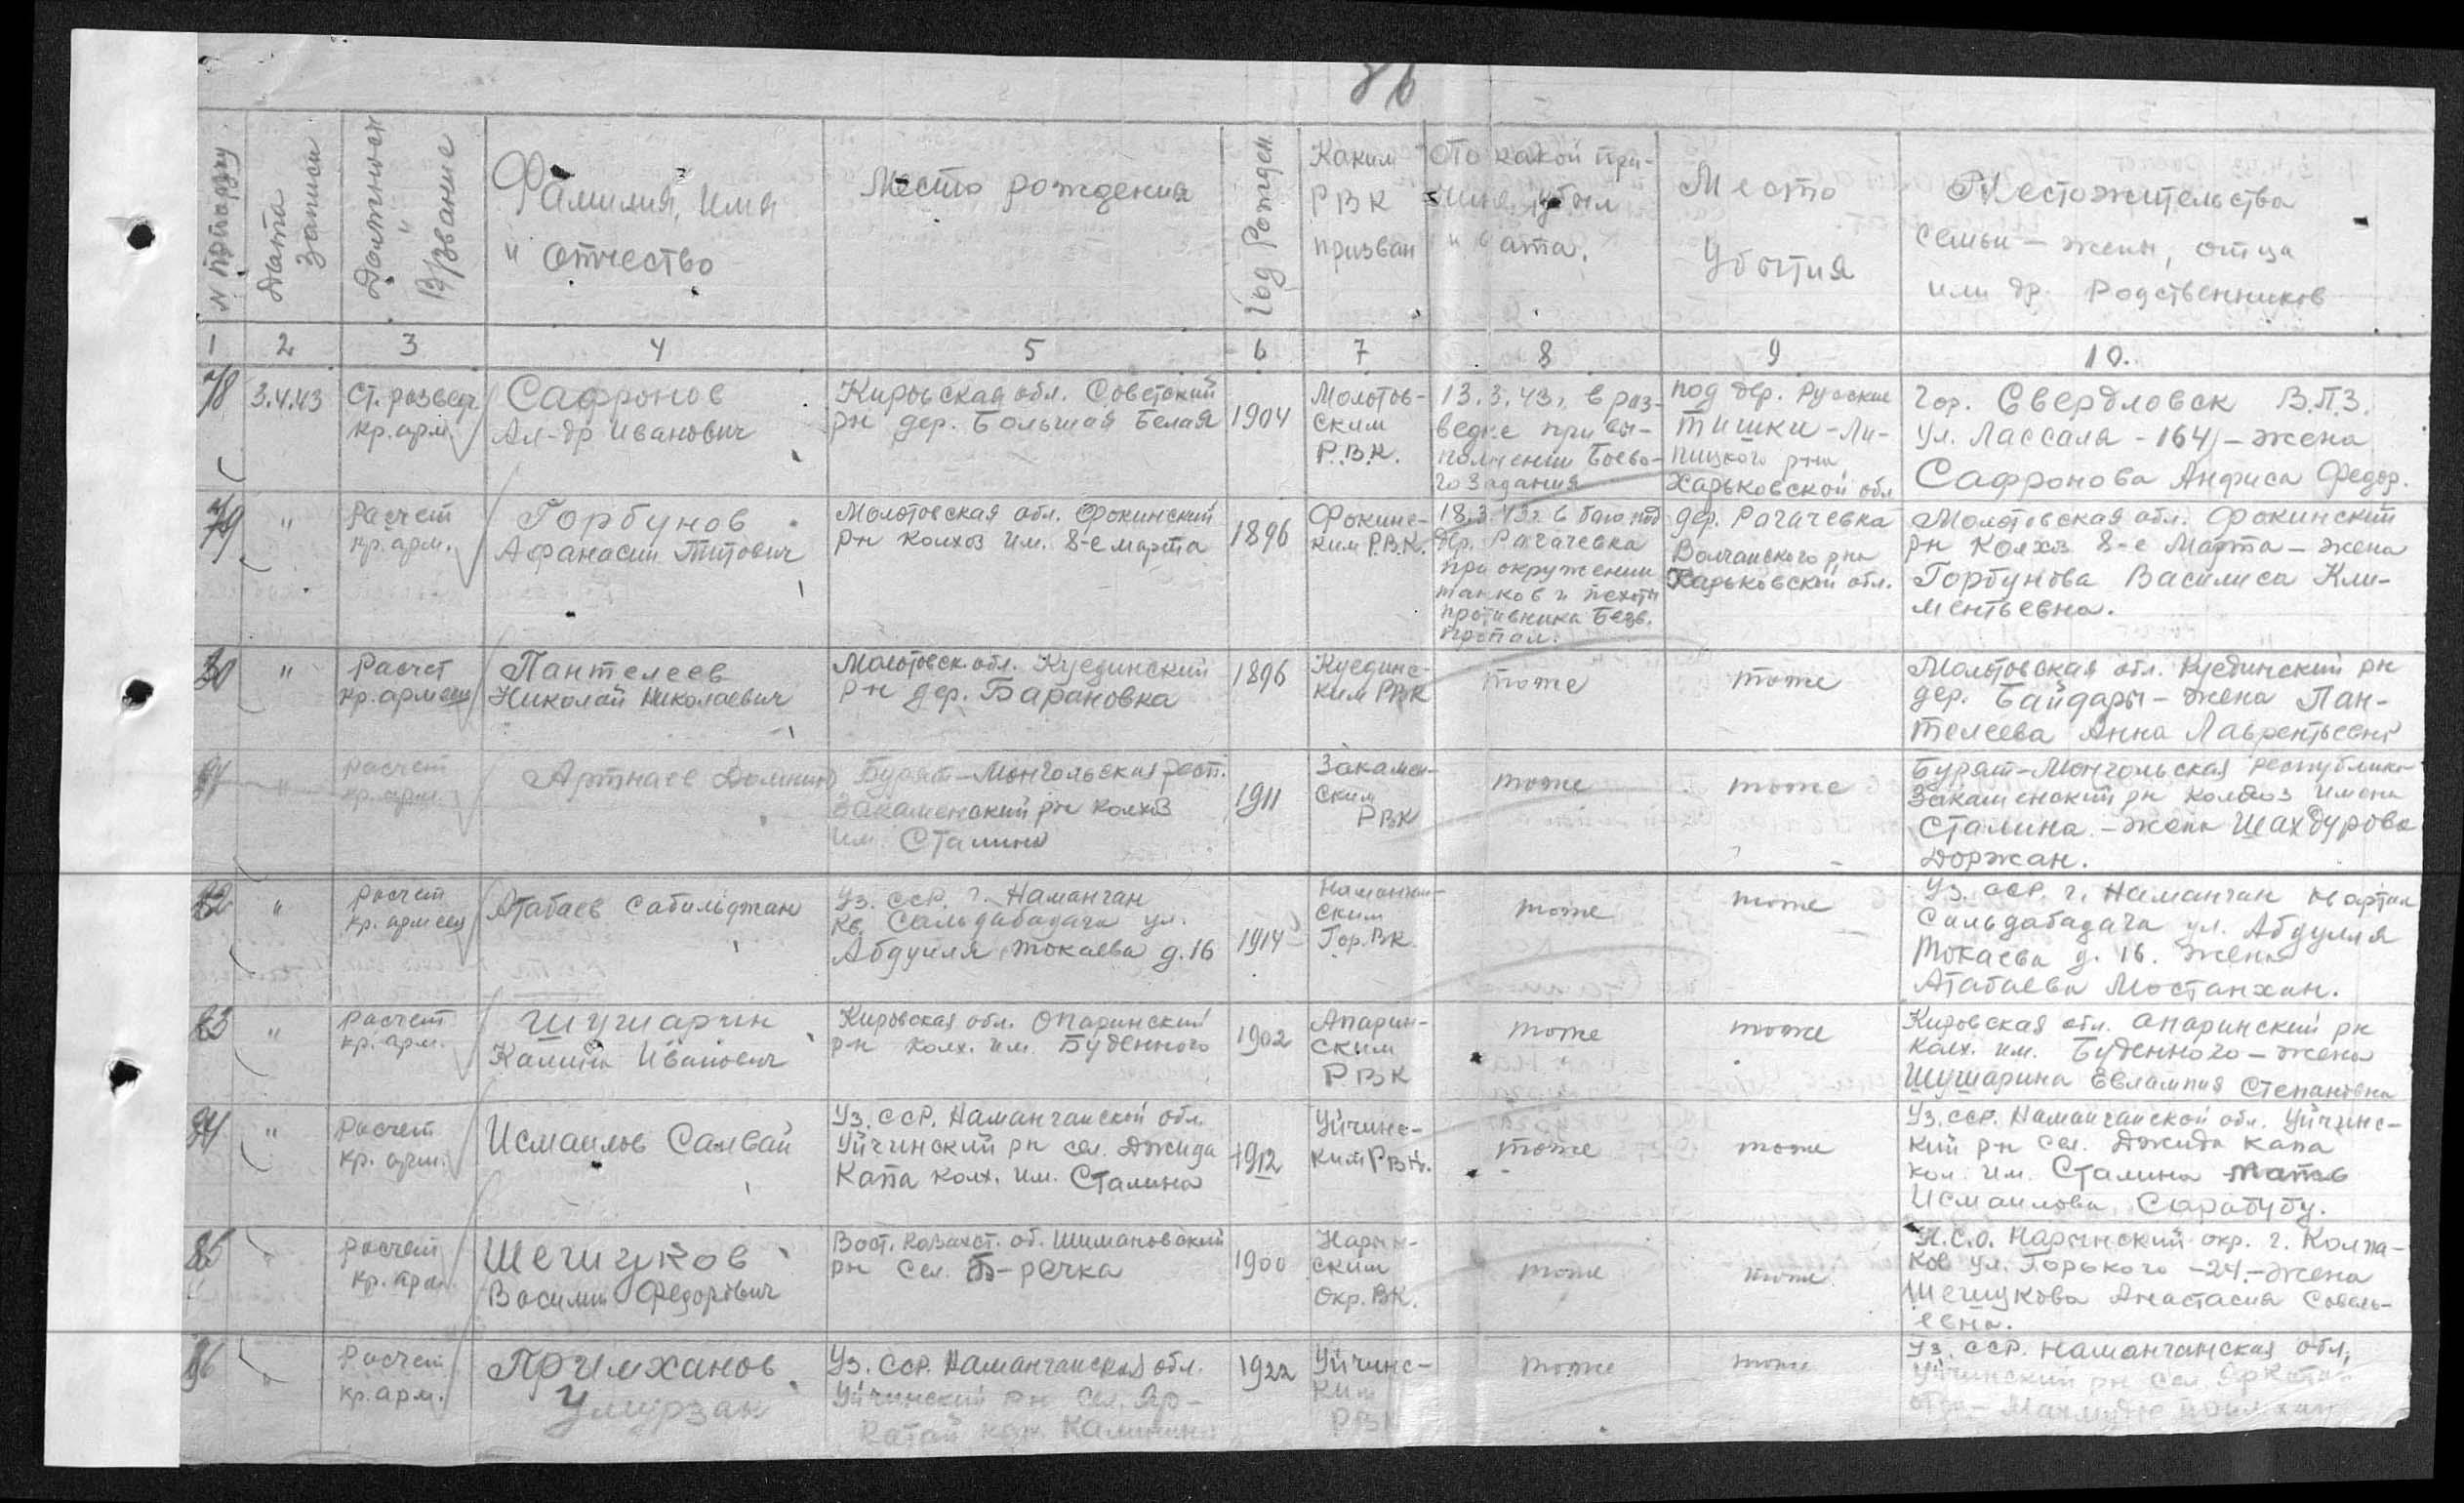 86
N по порядку
Дата
Записи
Должност
и
В/звание
Фамилия, имя
и отчество
Место рождения
Год Рожден.
Каким
РВК
призван
От какой при-
чины убыл
и дата.
Место
Убытия
Местожительства
семьи - жены, отца
или др. Родственников
1 2 3 4 5 6 7 8 9 10.
78
3.4.43
Ст. развед
кр. арм
Сафронов
Ал-др Иванович
Кировская обл. Советский
рн дер. Большая Белая
1904
Молотов-
ским
Р.В.К.
13.3.43г. в раз-
ведке при вы-
полнении Боево-
го задания
под дер. Русские
Тишки - Ли-
пицкого р-на
Харьковской обл
гор. Свердловск В.П.З.
ул. Лассаля - 164 - жена
Сафронова Анфиса Федор.
79
"
Расчет
кр. арм.
Горбунов
Афанасий Титович
Молотовская обл. Фокинский
рн колхоз им. 8-е марта
1896
Фокинс-
ким Р.В.К.
18.3.43г. в бою под
дер. Рагачевка
при окружении
танков и пехоты
противника Безв.
пропал.
дер. Рагачевка
Волчанского рна
Харьковской обл.
Молотовская обл. Фокинский
рн Колхз 8-е Марта - жена
Горбунова Василиса Кли-
ментьевна.
80
"
Расчет
кр. армеец
Пантелеев
Николай Николаевич
Молотовск. обл. Куединский
р-н дер. Барановка
1896
Куединс-
ким РВК
тоже
тоже
Молотовская обл. Куединский рн
дер. Байдары - жена Пан-
телеева Анна Лаврентьевн
81
"
расчет
кр. арм.
Артнаее Доминю
Бурят-Монгольская респ.
Закаменский рн колхоз
им. Сталина
1911
Закамен-
ским
РВК
тоже
тоже
Бурят-Монгольская республика
Закаменский рн колхоз имени
Сталина - жена Шахдурова
Доржан.
82
"
расчет
кр. армеец
Атабаев Сабильджан
Уз. ССР. г. Наманган
кв. Сальдабадача ул.
Абдулля Токаева д. 16
1914
Наманган-
ским
Гор. ВК.
тоже
тоже
Уз. ССР. г. Наманган квартал
Сальдабадача ул. Абдулля
Токаева д. 16. жена
Атабаева Мостанхан.
83
"
расчет
кр. арм.
Шушарин
Калина Иванович
Кировская обл. Опаринский
р-н колх. им. Буденного
1902
Апарин-
ским
Р.ВК
тоже
тоже
Кировская обл. Опаринский рн
колх. им. Буденного - жена
Шушарина Евлампия Степановна
84
"
Расчет
кр. арм.
Исмаилов Салвай
Уз. ССР. Наманганской обл.
Уйчинский рн сел. Джида
Капа колх. им. Сталина
1912
Уйчинс-
ким РВК.
тоже
тоже
Уз. ССР. Наманганской обл. Уйчинс-
кий рн сел. Джида Капа
кол. им. Сталина мать
Исмаилова Сарабубу.
85
"
расчет
кр. арм.
Шешуков
Василий Федорович
Вост. Казахст. об. Шимановский
рн сел. Б-речка
1900
Нарым-
ским
Окр. ВК.
тоже
тоже
Н.С.О. Нарымский окр. г. Колпа-
ков ул. Горького - 24. - жена
Шешукова Анастасия Савель-
евна.
86
"
Расчет
кр. арм.
Примханов
Умурзак
Уз. ССР. Наманганская обл.
Уйчинский рн сел. Яр-
катай кох. Калинина
1922
Уйчинс-
ким
РВК
тоже
тоже
Уз. ССР. Наманганская обл,
Уйчинский рн сел. Яркатай
отец - Махмудов